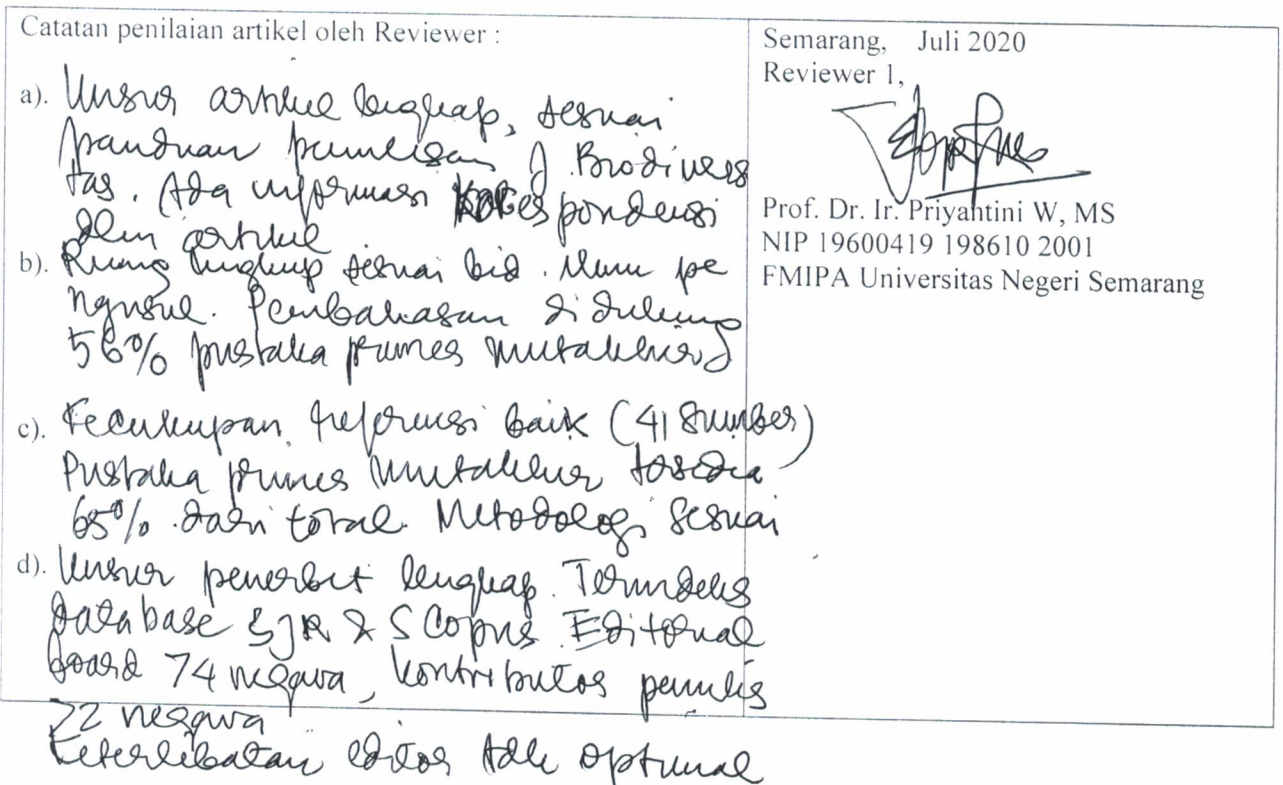 Catatan penilaian artikel oleh Reviewer :
a). Unsur artikel lengkap, sesuai
panduan penulisan J. Biodivers
tas. Ada informasi korespondensi
dlm artikel
b). Ruang lingkup sesuai bid. ilmu pe
ngusul. Pembahasan didukung
56% pustaka primer mutakhir
c). Kecukupan referensi baik (41 sumber)
Pustaka primer mutakhir tersedia
65% dari total. Metodologi sesuai
d). Unsur penerbit lengkap. Terindeks
database SJR & SCopus Editorial
board 74 negara, kontributor penulis
22 negara
Keterlibatan editor tdk optimal
Semarang, Juli 2020
Reviewer 1,
Prof. Dr. Ir. Priyantini W, MS
NIP 19600419 198610 2001
FMIPA Universitas Negeri Semarang